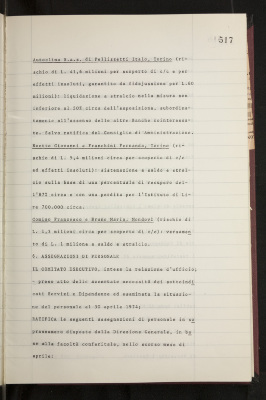 517
Accorlina S.a.s. di Pellizzatti Irzio, Torino (ri-
schio di L. 41,6 milioni per scoperto di c/c e per
effetti insoluti, garantito da fidejussione per L.60
milioni): liquidazione a stralcio nella misura non
inferiore al 50% circa dell'esposizione, subordina-
tamente all'assenso delle altre Banche interessa-
te. Salvo ratifica del Consiglio di Amministrazione.
Martin Giovanni e Franchini Fernanda, Torino (ri-
schio di L. 2,4 milioni circa per scoperto di c/c
ed effetti insoluti): sistemazione a saldo e stral-
cio sulla base di una percentuale di recupero del-
l'87% circa e con una perdita per l'Istituto di li-
re 700.000 circa.
Comino Francesco e Bruno Maria, Mondovì (rischio di
L. 1,3 milioni circa per scoperto di c/c): versamen
to di L. 1 milione a saldo e stralcio.
6. ASSEGNAZIONI DI PERSONALE
IL COMITATO ESECUTIVO, intesa la relazione d'ufficio;
- preso atto delle accertate necessità dei sottoindi
cati Servizi e Dipendenze ed esaminata la situazio-
ne del personale al 30 aprile 1974;
RATIFICA le seguenti assegnazioni di personale in es
perimento disposte dalla Direzione Generale, in ba
se alle facoltà conferitele, nello scorso mese di
aprile: